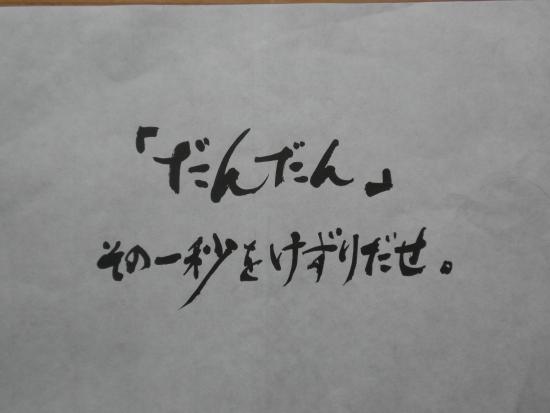 「だんだん」
その一秒をけずりだせ。